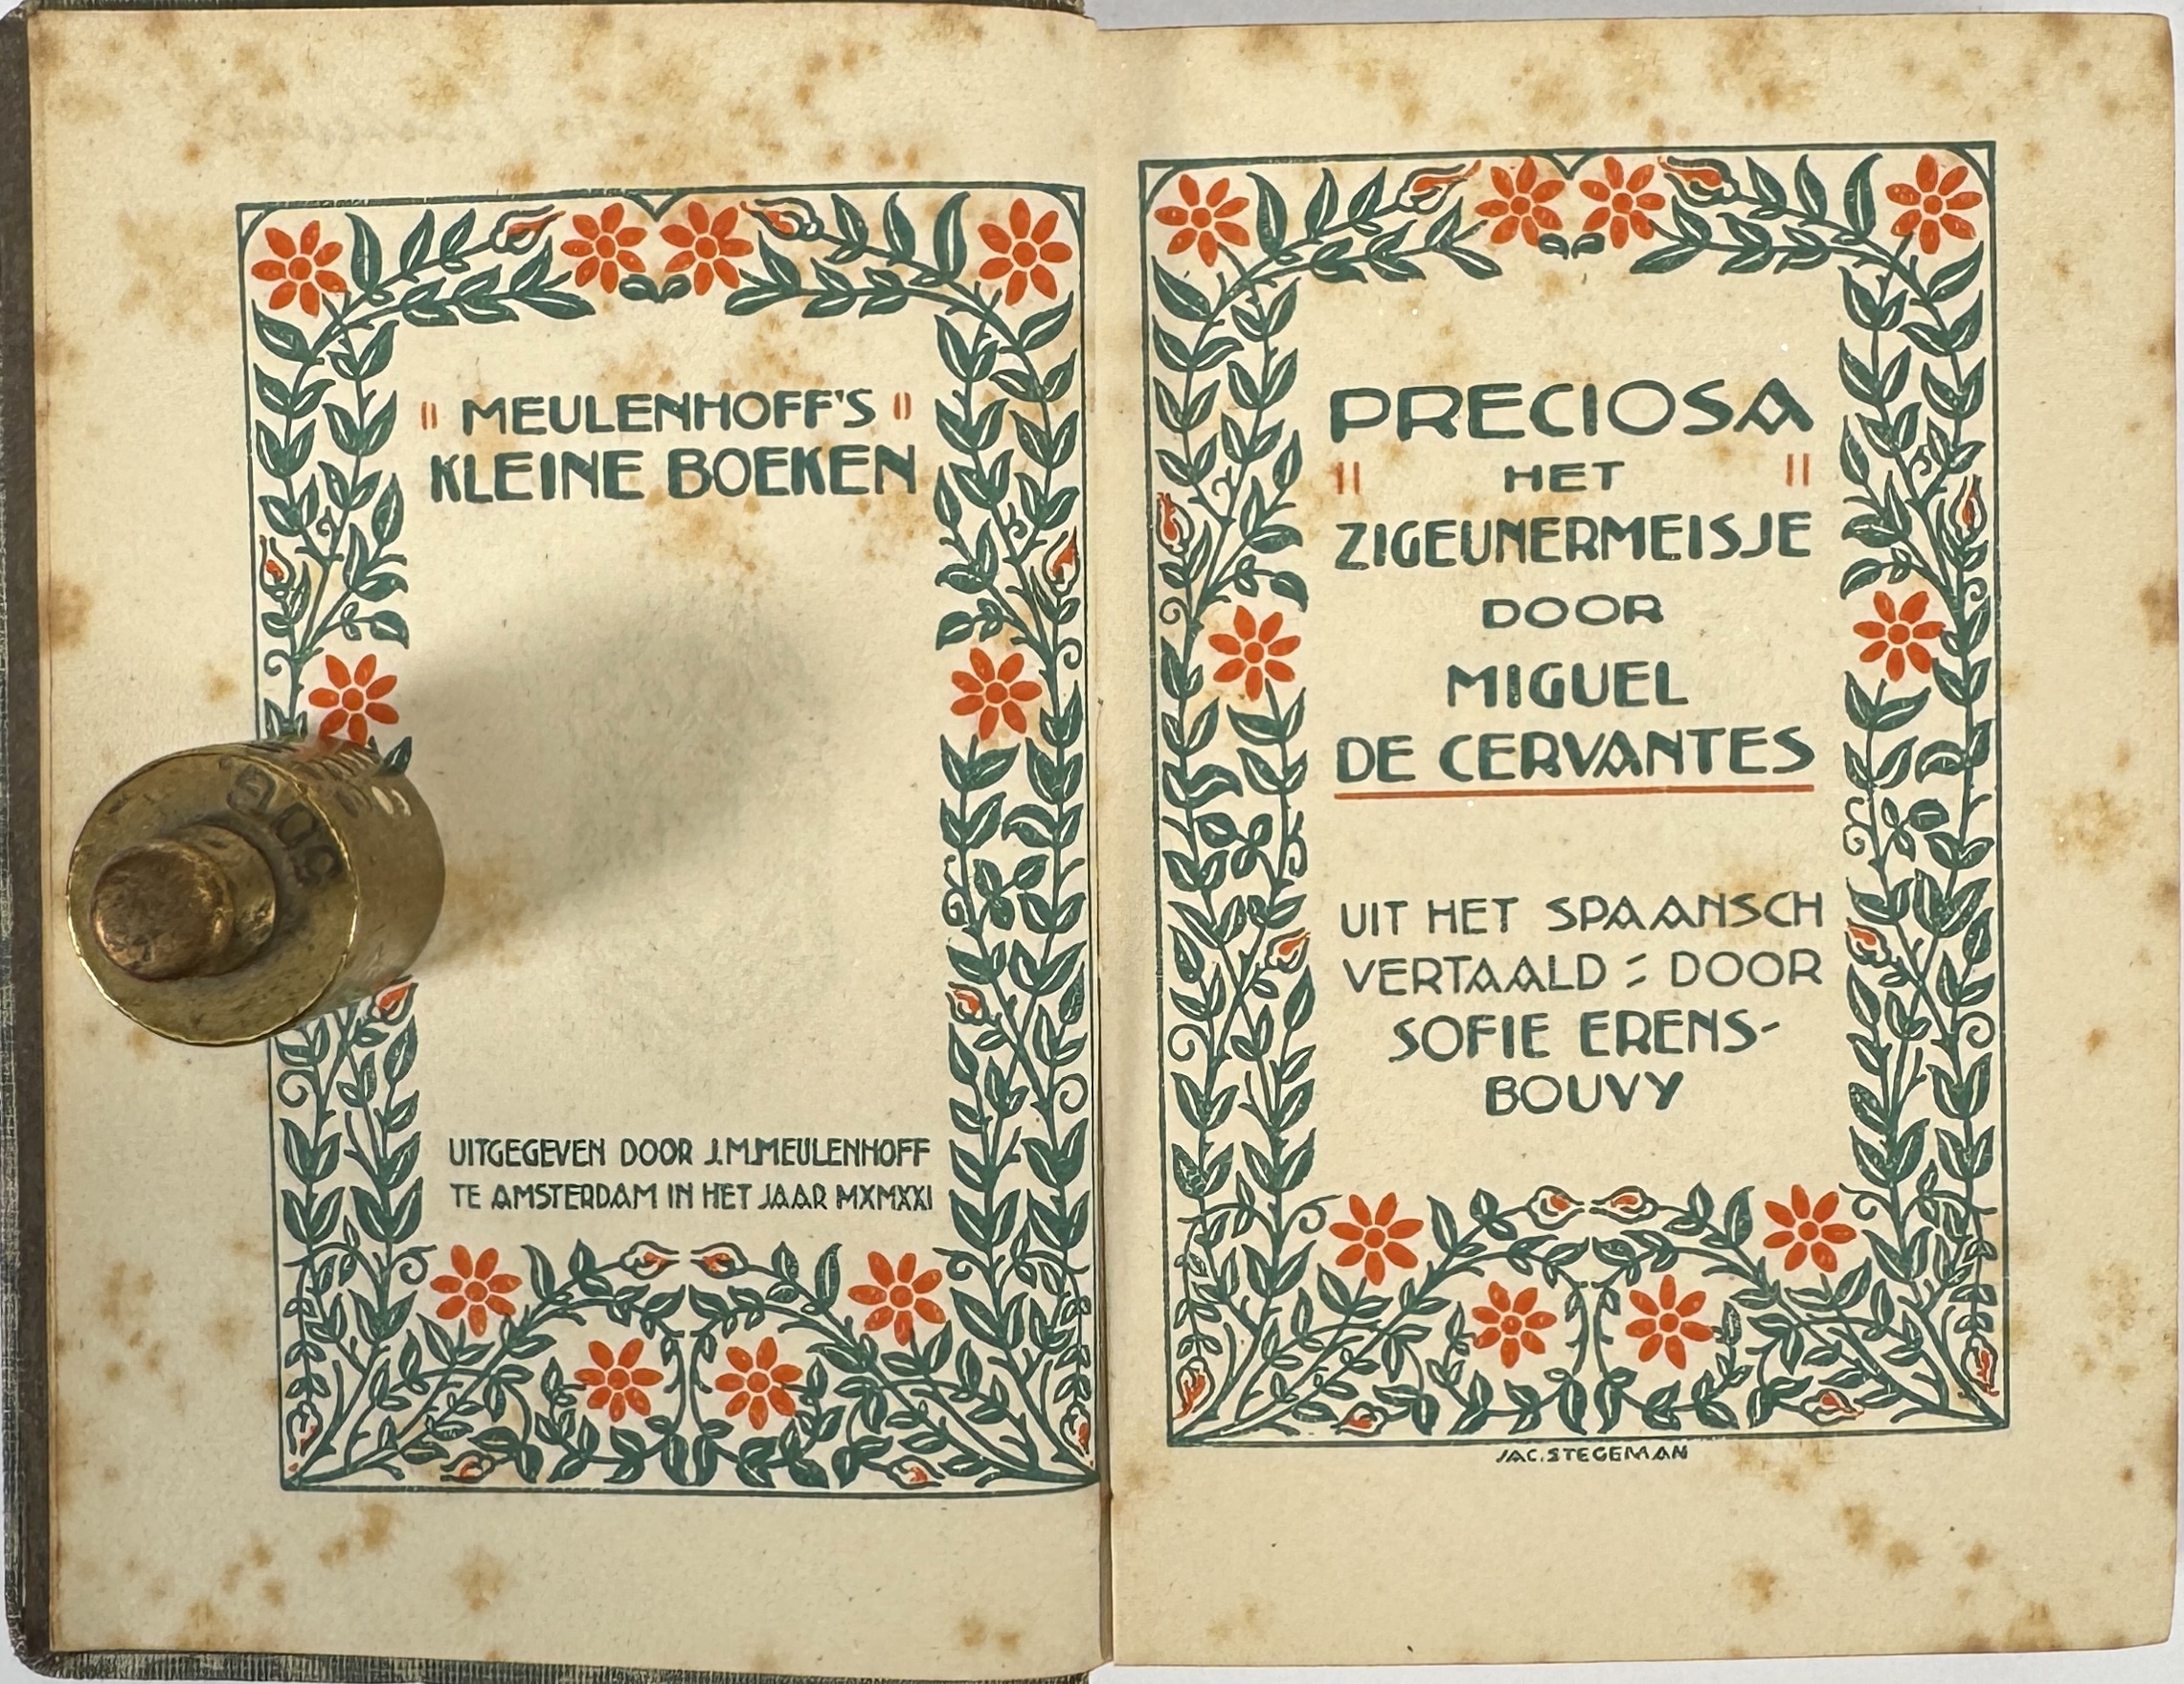 MEULENHOFF'S
KLEINE BOEKEN
UITGEGEVEN DOOR J.M.MEULENHOFF
TE AMSTERDAM IN HET JAAR MXMXXI
PRECIOSA
HET
ZIGEUNERMEISJE
DOOR
MIGUEL
DE CERVANTES
UIT HET SPAANSCH
VERTAALD = DOOR
SOFIE ERENS-
BOUVY
JAC. STEGEMAN